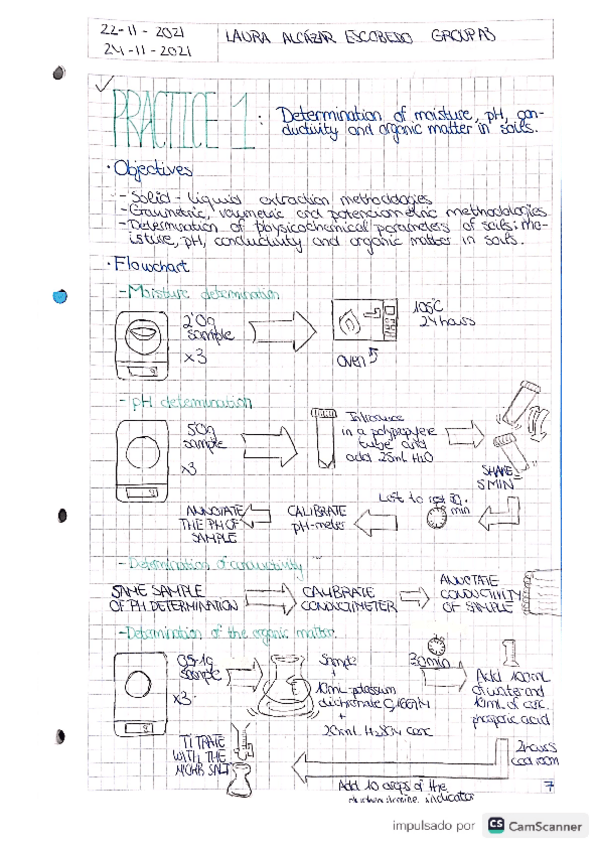 22-11-2021
24-11-2021
LAURA ALCÁZAR ESCOBEDO GROUP A3
PRACTICE 1: Determination of moisture, pH, con-
ductivity and organic matter in soils.
· Objectives
- Solid-liquid extraction methodologies
- Gravimetric, volymetric and potenciometric methodologies
- Determination of physicochemical parameters of soils: mo-
isture, pH, conductivity and organic matter in soils.
· Flowchart
- Moisture determination
sample
x3
105°C
24 hours
oven
- pH determination
sample
x3
Introduce
in a polypropylene
tube and
add 25mL H2O
SHAKE
5 MIN
Let to rest
min
CALIBRATE
pH-meter
ANNOTATE
THE PH OF
SAMPLE
- Determination of conductivity
SAME SAMPLE
OF PH DETERMINATION
CALIBRATE
CONDUCTIMETER
ANNOTATE
CONDUCTIVITY
OF SAMPLE
- Determination of the organic matter
0,5-1g
sample
x3
Sample
+
10mL potassium
dichromate
+
20mL H2SO4 conc
30min
Add 100mL
of water and
10mL of conc.
phosphoric acid
2 hours
cool room
Add 10 drops of the
indicator
TITRATE
WITH THE
MOHR SALT
7
impulsado por CS CamScanner